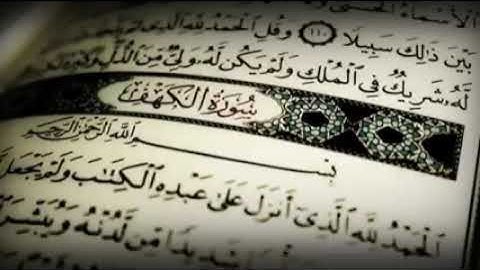 الْأَسْمَاءُ الْحُسْنَىٰ
بَيْنَ ذَٰلِكَ سَبِيلًا ١١٠ وَقُلِ الْحَمْدُ لِلَّهِ الَّذِي لَمْ
لَّهُ شَرِيكٌ فِي الْمُلْكِ وَلَمْ يَكُن لَّهُ وَلِيٌّ مِّنَ الذُّلِّ وَ
سُورَةُ الْكَهْفِ
بِسْمِ اللَّهِ الرَّحْمَٰنِ الرَّحِيمِ
الْحَمْدُ لِلَّهِ الَّذِي أَنزَلَ عَلَىٰ عَبْدِهِ الْكِتَابَ وَلَمْ يَجْعَل
شَدِيدًا مِّن لَّدُنْهُ وَيُبَشِّرَ